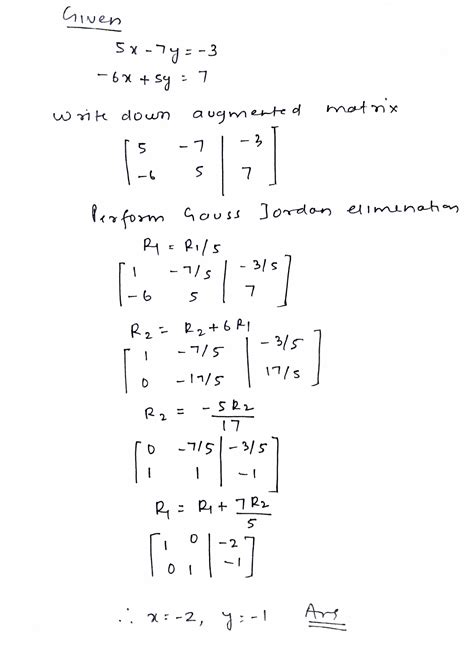 Given
5x - 7y = -3
-6x + 5y = 7
Write down augmented matrix
[ 5 -7 | -3 ]
[ -6 5 | 7 ]
Perform Gauss Jordan elimenation
R1 = R1/5
[ 1 -7/5 | -3/5 ]
[ -6 5 | 7 ]
R2 = R2 + 6R1
[ 1 -7/5 | -3/5 ]
[ 0 -17/5 | 17/5 ]
R2 = -5R2/17
[ 0 -7/5 | -3/5 ]
[ 1 1 | -1 ]
R1 = R1 + 7R2/5
[ 1 0 | -2 ]
[ 0 1 | -1 ]
∴ x = -2, y = -1 Ans